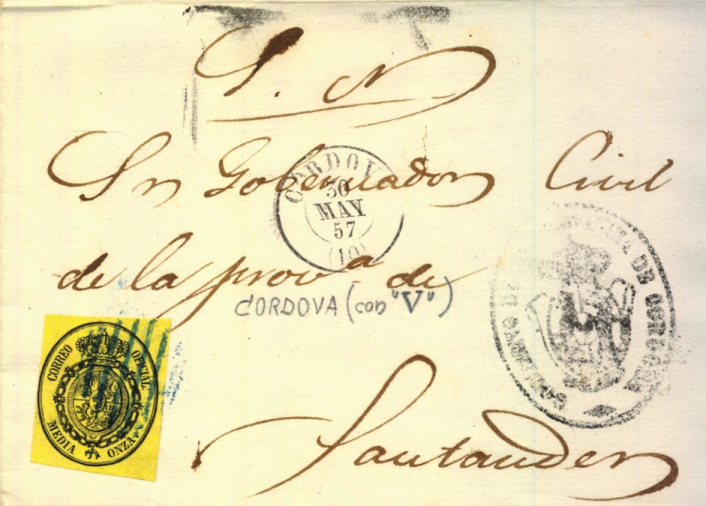 S. N.
Sr. Gobernador Civil
CORDOVA
30
MAY
57
(10)
de la provª de
CORDOVA (con "V")
CORREO OFICIAL
MEDIA ONZA
DE CORDOBA
Santander